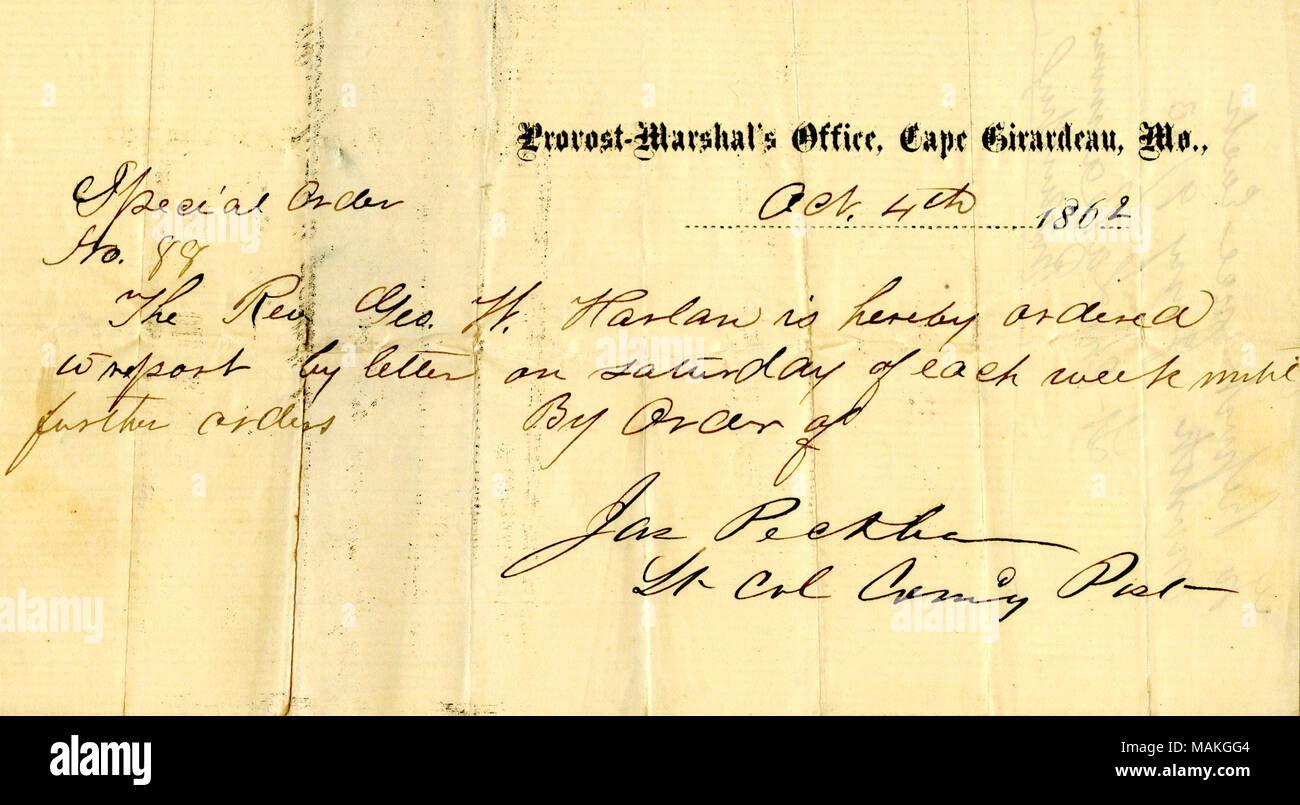 Provost-Marshal's Office, Cape Girardeau, Mo.,
Special Order
Oct. 4th 1862
No. 88
The Rev Geo. W. Harlan is hereby ordered
to report by letter on saturday of each week until
further orders By Order of
Jas Peckham
Lt Col Com'd'g Post
alamy
Image ID: MAKGG4
www.alamy.com